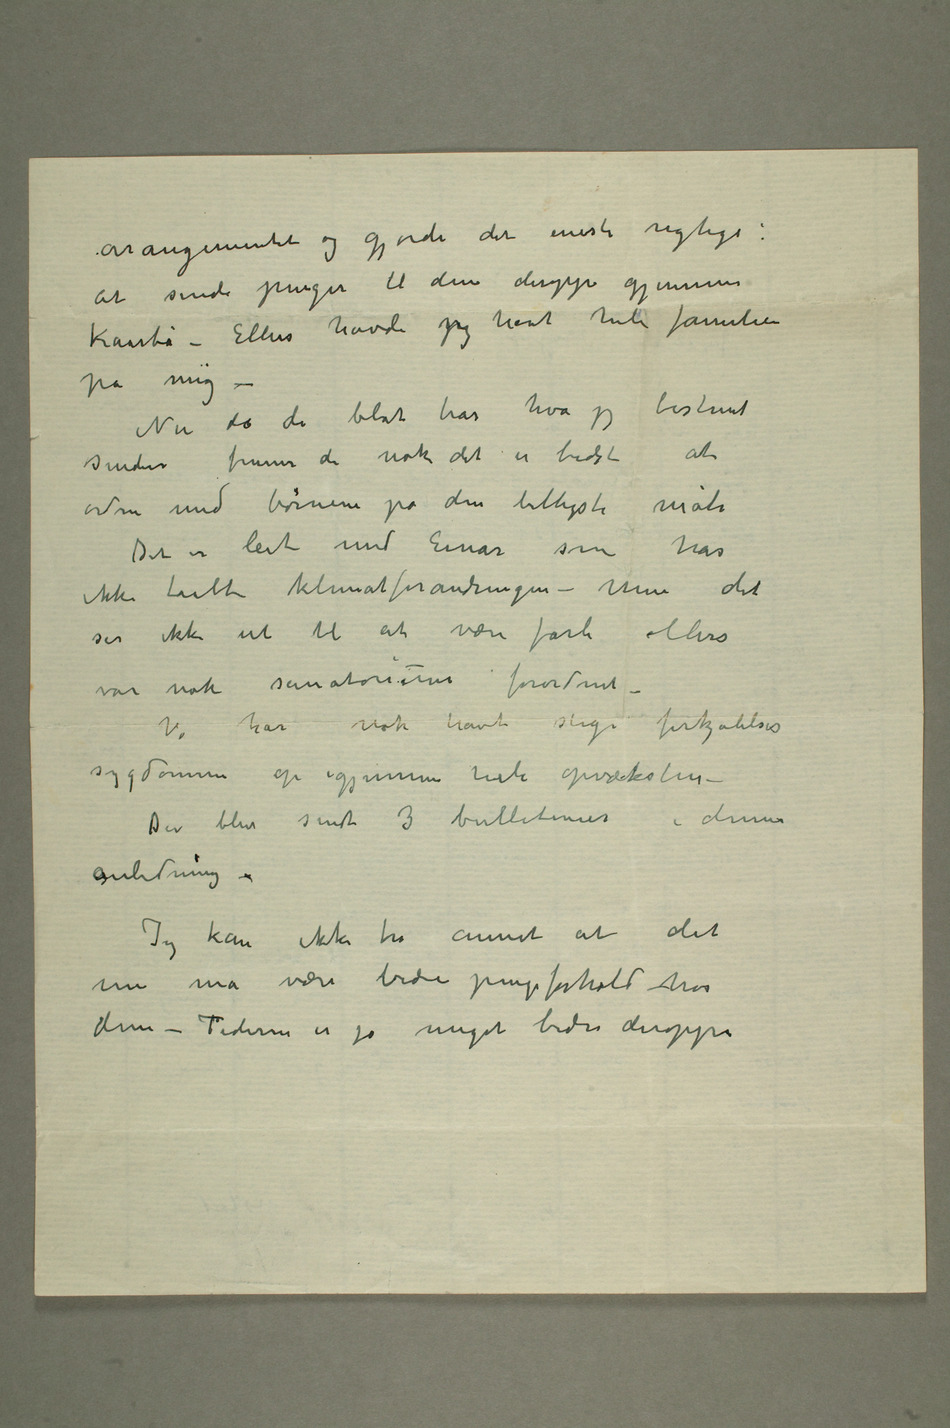 arangementet og gjorde det eneste rigtige:
at sende penger til dem deroppe gjennem
Kaarbø – Ellers havde jeg havt hele familien
på mig –
Nu da de blot har hva jeg bestemt
sender finner de nok det er bedst at
ordne med børnene på den billigste måte
Det er leit med Einar som har
ikke taalt klimatforandringen – Men det
ser ikke ut til at være farli ellers
var nok sanatorium forordnet –
Vi har nok havt slige forkjølelses
sygdomme op igjennem hele opvæksten –
Der blev sendt 3 bulletiner i denne
anledning –
Jeg kan ikke tro annet at det
nu må være bedre pengeforhold hos
dem – Tiderne er jo meget bedre deroppe